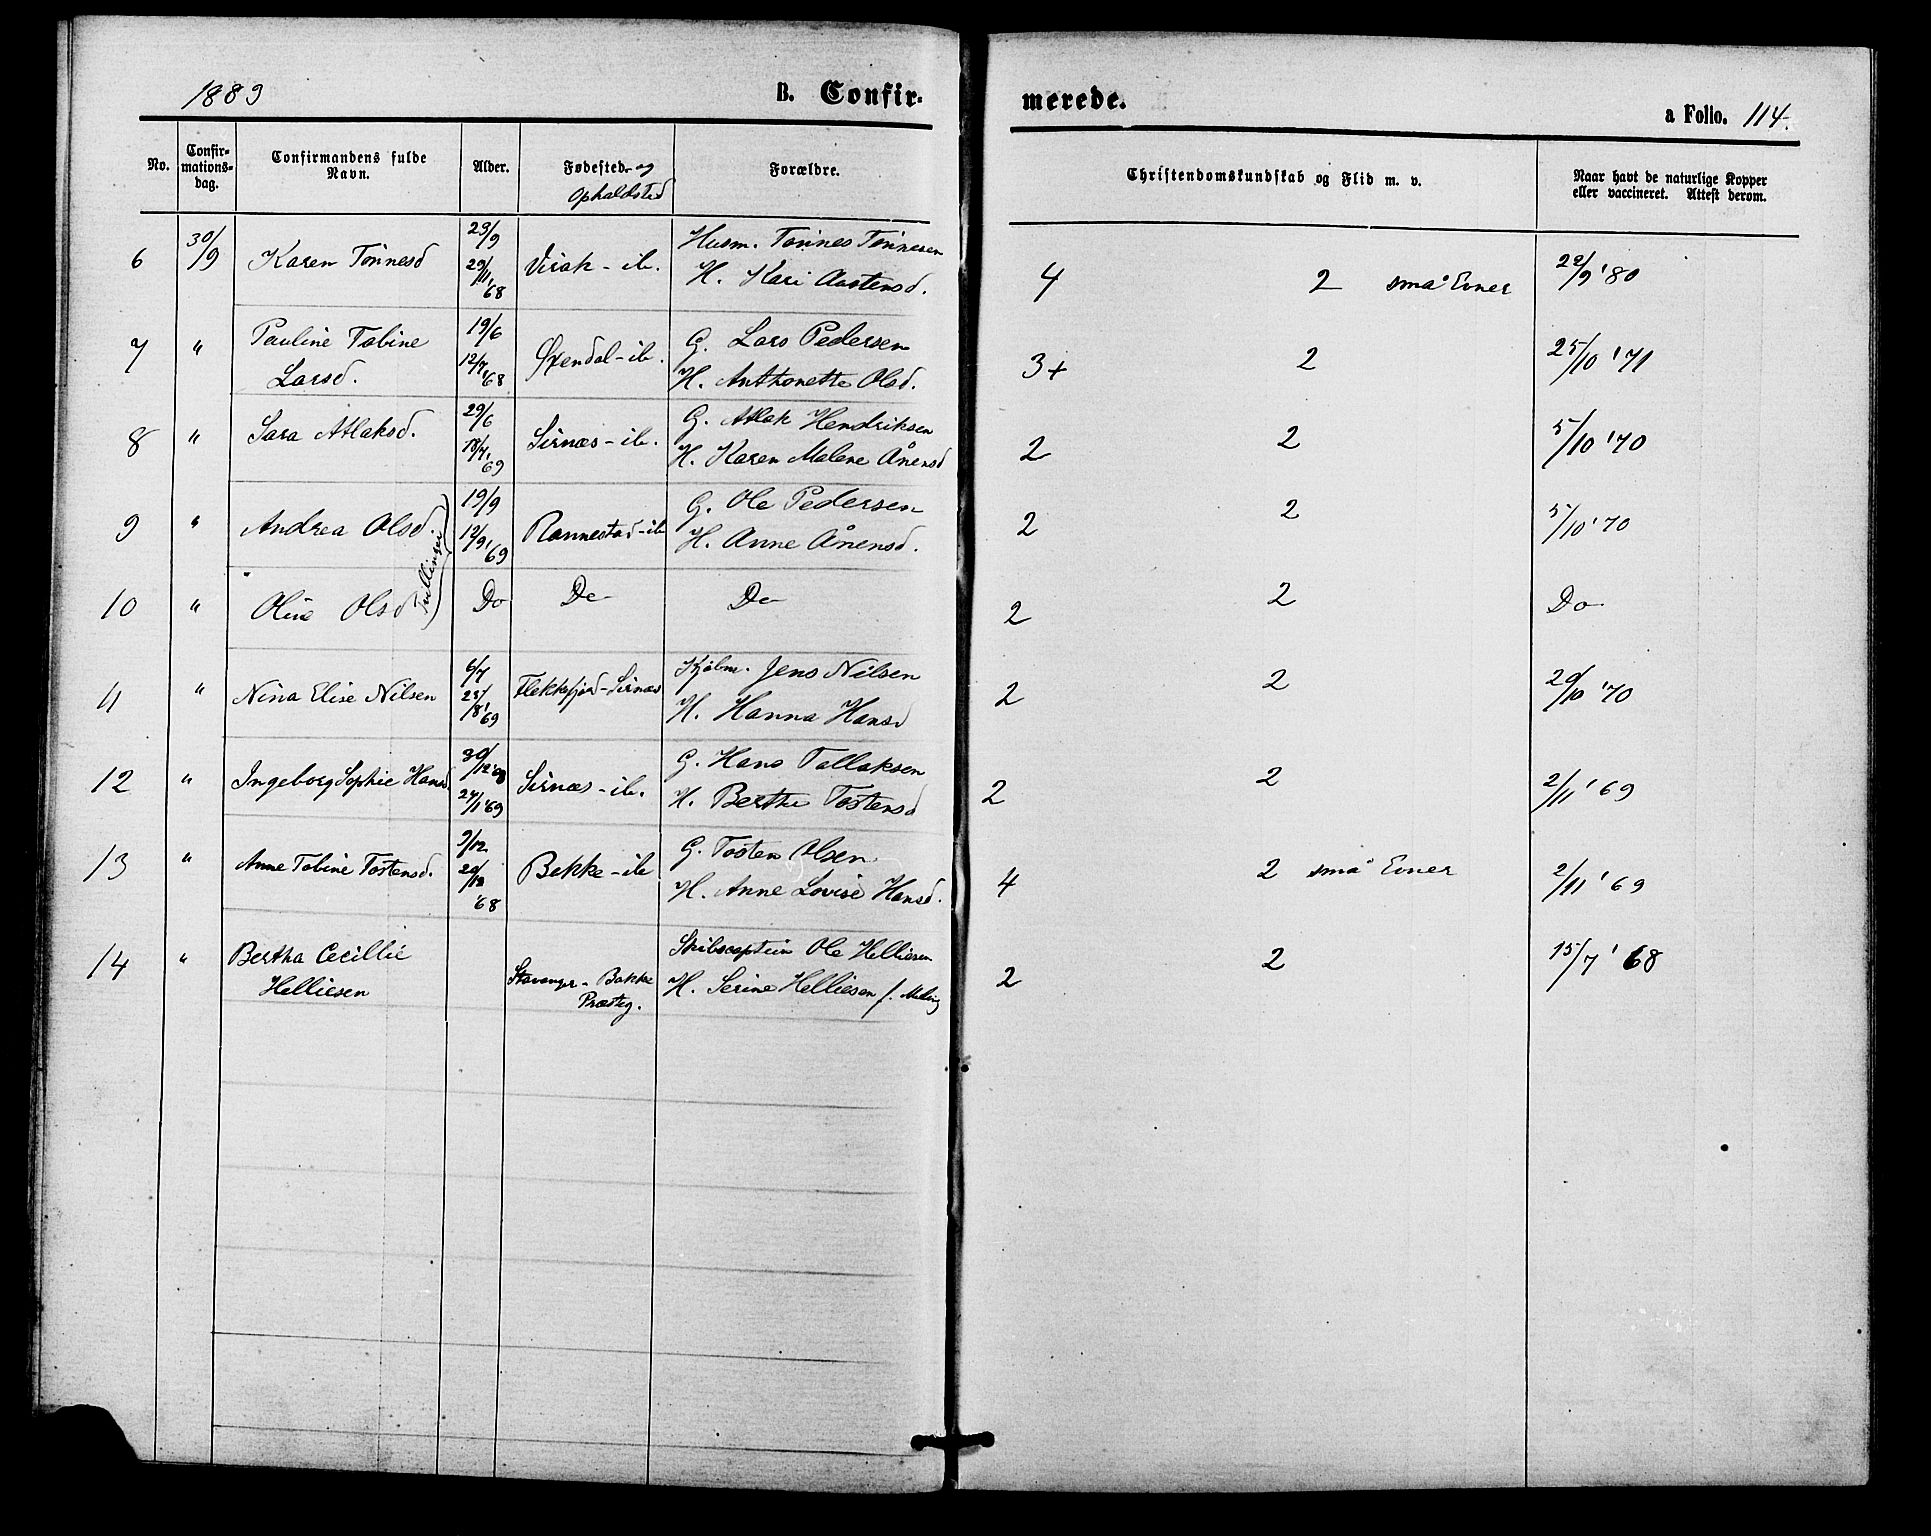 1883 B. Confir- merede. a Folio. 114.
No. Confir-mations-dag. Confirmandens fulde Navn. Alder. Fødested og Opholdsted Forældre. Christendomskundskab og Flid m. v. Naar havt de naturlige Kopper eller vaccineret. Attest derom.
6 30/9 Karen Tønnesd 29/9 Virak - ib. Husm. Tønnes Tønnesen
29/11 '68 H. Kari Aastensd. 4 2 små Evner 22/9 '80
7 " Pauline Tobine 19/6 Øxendal - ib. G. Lars Pedersen
Larsd. 12/7 '68 H. Anthonette Olsd. 3+ 2 25/10 '71
8 " Sara Atlaksd. 29/6 Sirnæs - ib. G. Atlak Hendriksen
18/7 '69 H. Karen Malene Ånensd 2 2 5/10 '70
9 " Andrea Olsd. 19/9 Rannestad - ib G. Ole Pedersen
12/9 '69 H. Anne Ånensd. 2 2 5/10 '70
Tvillinger
10 " Olive Olsd Do Do Do 2 2 Do
11 " Nina Elise Nilsen 6/7 Flekkefjord - Sirnæs Kjøbm. Jens Nilsen
25/8 '69 H. Hanna Hansd 2 2 20/10 '70
12 " Ingeborg Sophie Hansd. 30/12 '68 Sirnæs - ib. G. Hans Tallaksen
24/1 '69 H. Berthe Tostensd 2 2 2/11 '69
13 " Anne Tobine Tostensd. 9/12 Bakke - ib G. Tosten Olsen
20/12 '68 H. Anne Lovise Hansd. 4 2 små Evner 2/11 '69
14 " Bertha Cecillie Skibscaptein Ole Helliesen
Helliesen Stavanger - Bakke Præsteg. H. Serine Helliesen f. Meling 2 2 15/7 '68